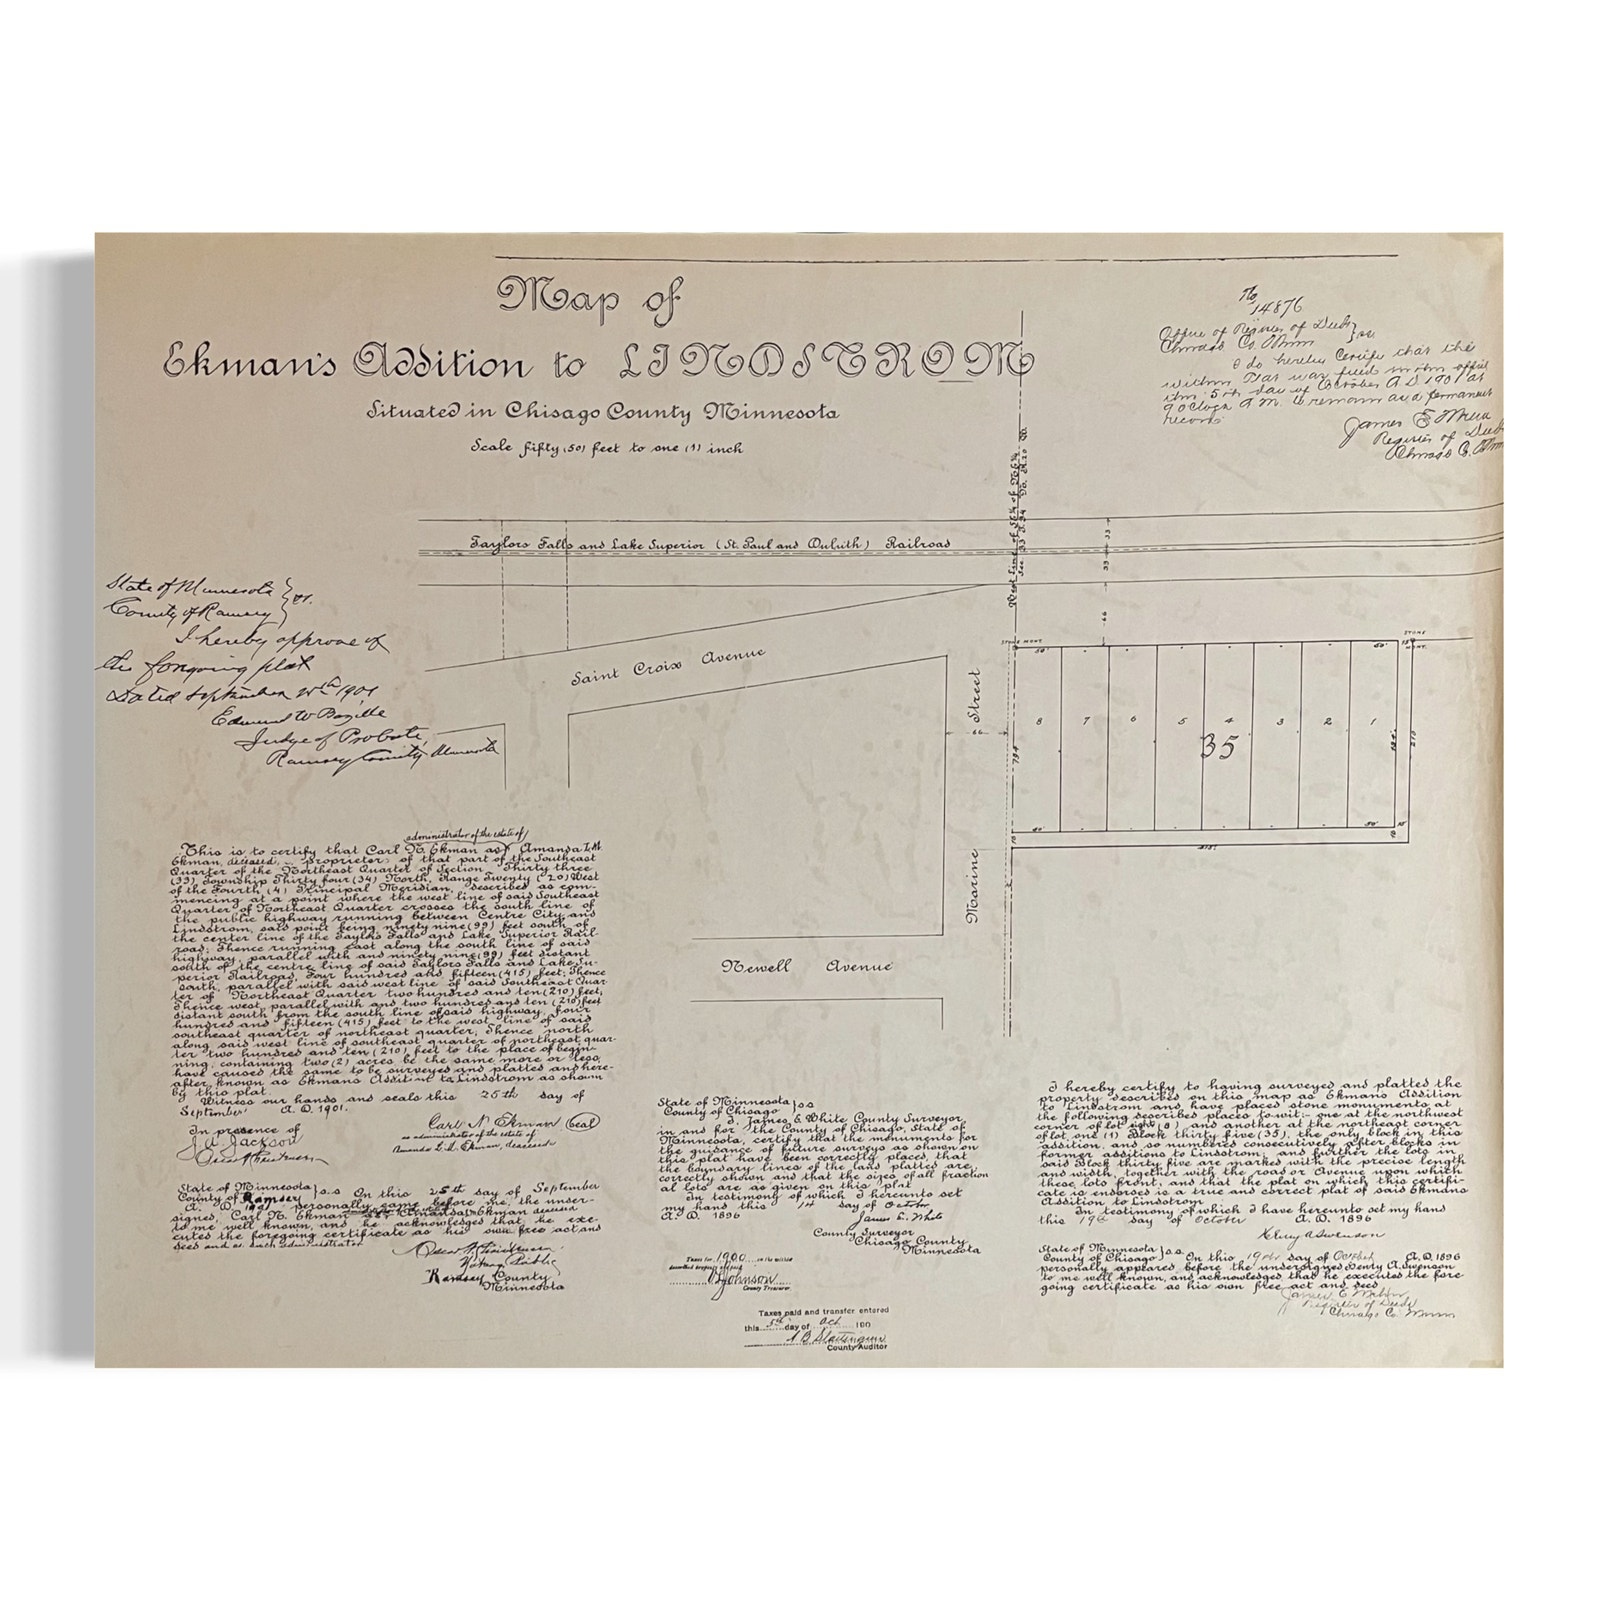 Map of
Ekman's Addition to LINDSTROM
Situated in Chisago County Minnesota
Scale fifty (50) feet to one (1) inch
No
14876
Office of Register of Deeds } ss
Chisago Co. Minn
I do hereby Certify that the
within Plat was filed in this office
this 5th day of October A D 1901 at
9 oClock A.M. & remains as a permanent
record
James E White
Register of Deeds
Chisago Co. Minn
West Line of SE¼ of NE¼
Sec 33 T. 34 No. R. 20 W.
Taylors Falls and Lake Superior (St. Paul and Duluth) Railroad
33
33
66
State of Minnesota } ss.
County of Ramsey }
I hereby approve of
the foregoing plat
Dated September 25th 1901
Edmund W Bazille
Judge of Probate,
Ramsey County Minnesota
Saint Croix Avenue
Street
66
Marine
Newell Avenue
STONE MONT.
STONE
MONT.
50'
50'
8 7 6 5 4 3 2 1
35
194
194
210
50'
50'
15'
415'
administrator of the estate of
This is to certify that Carl N. Ekman as Amanda L.M.
Ekman, deceased, proprietor of that part of the Southeast
Quarter of the Northeast Quarter of Section Thirty three
(33) Township Thirty four (34) North, Range Twenty (20) West
of the Fourth (4) Principal Meridian, described as com-
mencing at a point where the west line of said Southeast
Quarter of Northeast Quarter crosses the south line of
the public highway running between Centre City and
Lindstrom, said point being ninety nine (99) feet south of
the center line of the Taylors Falls and Lake Superior Rail-
road; Thence running east along the south line of said
highway, parallel with and ninety nine (99) feet distant
south of the centre line of said Taylors Falls and Lake Su-
perior Railroad, Four hundred and fifteen (415) feet; Thence
south, parallel with said west line of said Southeast Quar-
ter of Northeast Quarter two hundred and ten (210) feet;
Thence west, parallel with and two hundred and ten (210) feet
distant south from the south line of said highway, four
hundred and fifteen (415) feet to the west line of said
southeast quarter of northeast quarter; Thence north
along said west line of southeast quarter of northeast quar-
ter two hundred and ten (210) feet to the place of begin-
ning, containing two (2) acres be the same more or less,
have caused the same to be surveyed and platted and here-
after known as Ekmans Addition to Lindstrom as shown
by this plat.
Witness our hands and seals this 25th day of
September A. D. 1901.
In presence of
J. A. Jackson
Carl N. Ekman (Seal)
as administrator of the estate of
Amanda L.M. Ekman, deceased
State of Minnesota } s.s
County of Ramsey }
On this 25th day of September
A. D. 1901 personally came before me, the under-
signed, Carl N. Ekman
to me well known, and he acknowledged that he exe-
cuted the foregoing certificate as his own free act and
deed and as such administrator
Notary Public
Ramsey County
Minnesota
State of Minnesota } s.s
County of Chisago }
I, James E White County Surveyor
in and for the County of Chisago, State of
Minnesota, certify that the monuments for
the guidance of future surveys as shown on
this plat have been correctly placed, that
the boundary lines of the land platted are
correctly shown and that the sizes of all fraction
al lots are as given on this plat
In testimony of which I hereunto set
my hand this 14 day of October
A. D. 1896
James E. White
County Surveyor
Chisago County
Minnesota
Taxes for 1900 in the within
described property paid
Johnson
County Treasurer.
Taxes paid and transfer entered
this 5th day of Oct 190
County Auditor
I hereby certify to having surveyed and platted the
property described on this map as Ekmans Addition
to Lindstrom and have placed stone monuments at
the following described places to wit:- one at the northwest
corner of lot eight (8), and another at the northeast corner
of lot one (1) Block thirty five (35), the only block in this
addition, and so numbered consecutively after blocks in
former additions to Lindstrom; and further the lots in
said Block thirty five are marked with the precise length
and width, together with the road or Avenue upon which
these lots front, and that the plat on which this certifi-
cate is endorsed is a true and correct plat of said Ekmans
Addition to Lindstrom
In testimony of which I have hereunto set my hand
this 19th day of October A. D. 1896
Henry A Swenson
State of Minnesota } s.s
County of Chisago }
On this 19th day of October A. D. 1896
personally appeared before the undersigned Henry A. Swenson
to me well known, and acknowledged that he executed the fore-
going certificate as his own free act and deed
James E White
Register of Deeds
Chisago Co. Minn